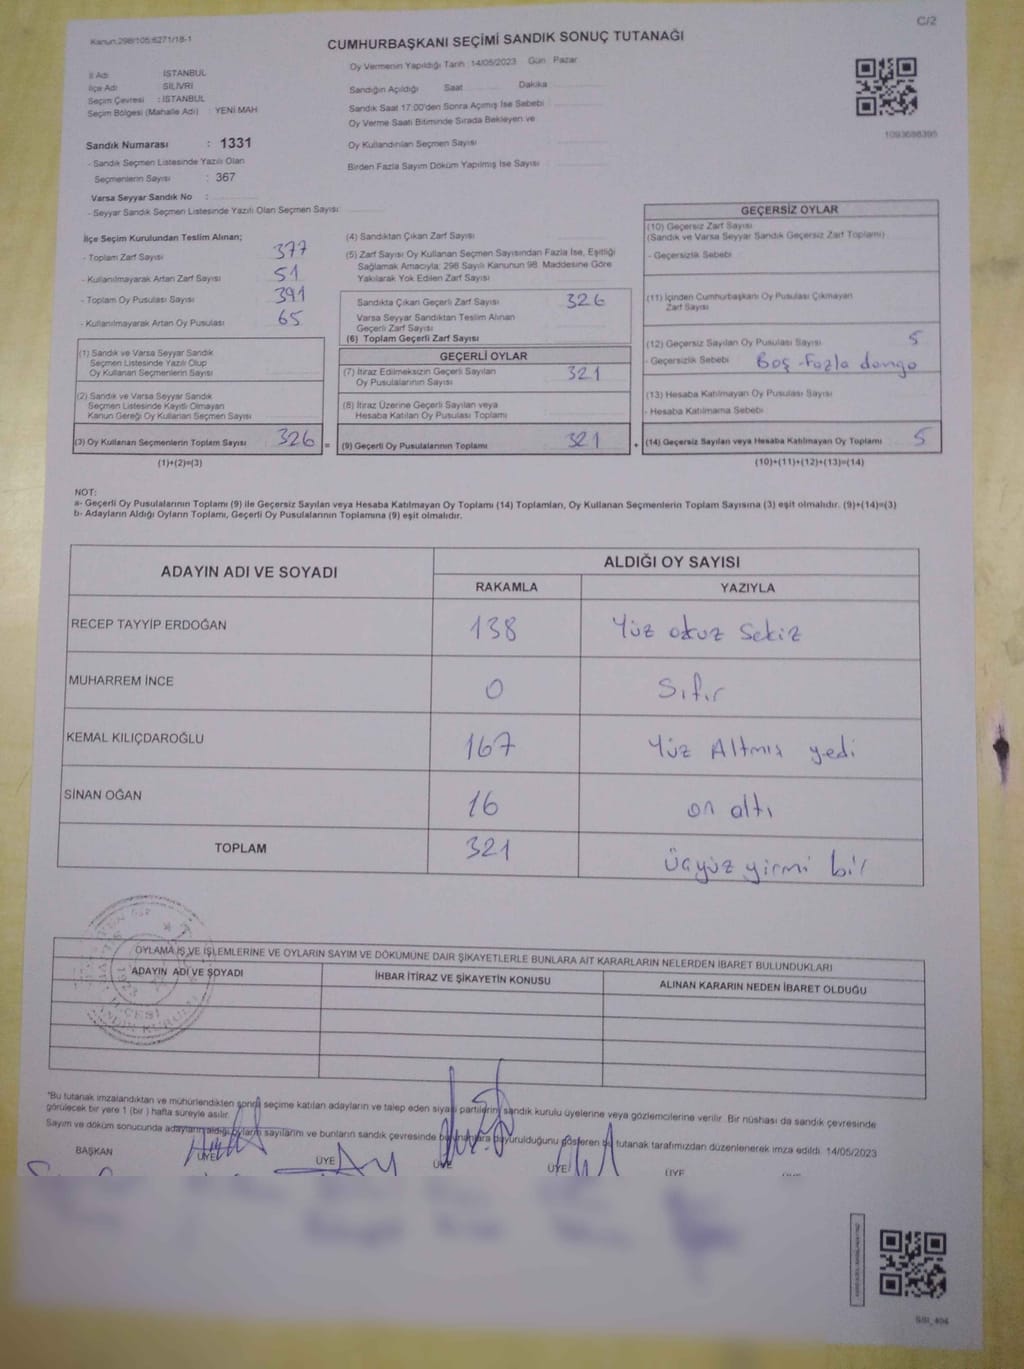 C/2
Kanun.298/105;6271/18-1
CUMHURBAŞKANI SEÇİMİ SANDIK SONUÇ TUTANAĞI
İl Adı : İSTANBUL
İlçe Adı : SİLİVRİ
Seçim Çevresi : İSTANBUL
Seçim Bölgesi (Mahalle Adı) : YENİ MAH
Oy Vermenin Yapıldığı Tarih :14/05/2023 Gün : Pazar
Sandığın Açıldığı Saat Dakika
Sandık Saat 17:00'den Sonra Açımış İse Sebebi
Oy Verme Saati Bitiminde Sırada Bekleyen ve
Oy Kullandırılan Seçmen Sayısı
Birden Fazla Sayım Döküm Yapılmış İse Sayısı
1093688395
Sandık Numarası : 1331
- Sandık Seçmen Listesinde Yazılı Olan
Seçmenlerin Sayısı : 367
Varsa Seyyar Sandık No :
- Seyyar Sandık Seçmen Listesinde Yazılı Olan Seçmen Sayısı:
İlçe Seçim Kurulundan Teslim Alınan;
- Toplam Zarf Sayısı 377
- Kullanılmayarak Artan Zarf Sayısı 51
- Toplam Oy Pusulası Sayısı 391
- Kullanılmayarak Artan Oy Pusulası 65
(1) Sandık ve Varsa Seyyar Sandık
Seçmen Listesinde Yazılı Olup
Oy Kullanan Seçmenlerin Sayısı
(2) Sandık ve Varsa Seyyar Sandık
Seçmen Listesinde Kayıtlı Olmayan
Kanun Gereği Oy Kullanan Seçmen Sayısı
(3) Oy Kullanan Seçmenlerin Toplam Sayısı 326 =
(1)+(2)=(3)
(4) Sandıktan Çıkan Zarf Sayısı
(5) Zarf Sayısı Oy Kullanan Seçmen Sayısından Fazla İse, Eşitliği
Sağlamak Amacıyla; 298 Sayılı Kanunun 98. Maddesine Göre
Yakılarak Yok Edilen Zarf Sayısı
Sandıkta Çıkan Geçerli Zarf Sayısı 326
Varsa Seyyar Sandıktan Teslim Alınan
Geçerli Zarf Sayısı
(6) Toplam Geçerli Zarf Sayısı
GEÇERLİ OYLAR
(7) İtiraz Edilmeksizin Geçerli Sayılan
Oy Pusulalarının Sayısı 321
(8) İtiraz Üzerine Geçerli Sayılan veya
Hesaba Katılan Oy Pusulaları Toplamı
(9) Geçerli Oy Pusulalarının Toplamı 321 +
GEÇERSİZ OYLAR
(10) Geçersiz Zarf Sayısı
(Sandık ve Varsa Seyyar Sandık Geçersiz Zarf Toplamı)
- Geçersizlik Sebebi
(11) İçinden Cumhurbaşkanı Oy Pusulası Çıkmayan
Zarf Sayısı
(12) Geçersiz Sayılan Oy Pusulası Sayısı 5
- Geçersizlik Sebebi Boş - Fazla damga
(13) Hesaba Katılmayan Oy Pusulası Sayısı
- Hesaba Katılmama Sebebi
(14) Geçersiz Sayılan veya Hesaba Katılmayan Oy Toplamı 5
(10)+(11)+(12)+(13)=(14)
NOT:
a- Geçerli Oy Pusulalarının Toplamı (9) ile Geçersiz Sayılan veya Hesaba Katılmayan Oy Toplamı (14) Toplamları, Oy Kullanan Seçmenlerin Toplam Sayısına (3) eşit olmalıdır. (9)+(14)=(3)
b- Adayların Aldığı Oyların Toplamı, Geçerli Oy Pusulalarının Toplamına (9) eşit olmalıdır.
ADAYIN ADI VE SOYADI ALDIĞI OY SAYISI
RAKAMLA YAZIYLA
RECEP TAYYİP ERDOĞAN 138 Yüz otuz Sekiz
MUHARREM İNCE 0 Sıfır
KEMAL KILIÇDAROĞLU 167 Yüz Altmış yedi
SİNAN OĞAN 16 on altı
TOPLAM 321 Üçyüz yirmi bir
OYLAMA İŞ VE İŞLEMLERİNE VE OYLARIN SAYIM VE DÖKÜMÜNE DAİR ŞİKAYETLERLE BUNLARA AİT KARARLARIN NELERDEN İBARET BULUNDUKLARI
ADAYIN ADI VE SOYADI İHBAR İTİRAZ VE ŞİKAYETİN KONUSU ALINAN KARARIN NEDEN İBARET OLDUĞU
*Bu tutanak imzalandıktan ve mühürlendikten sonra seçime katılan adayların ve talep eden siyasi partilerin sandık kurulu üyelerine veya gözlemcilerine verilir. Bir nüshası da sandık çevresinde
görülecek bir yere 1 (bir ) hafta süreyle asılır.
Sayım ve döküm sonucunda adayların aldığı oyların sayılarını ve bunların sandık çevresinde bulunanlara duyurulduğunu gösteren bu tutanak tarafımızdan düzenlenerek imza edildi. 14/05/2023
BAŞKAN ÜYE ÜYE ÜYE ÜYE ÜYE